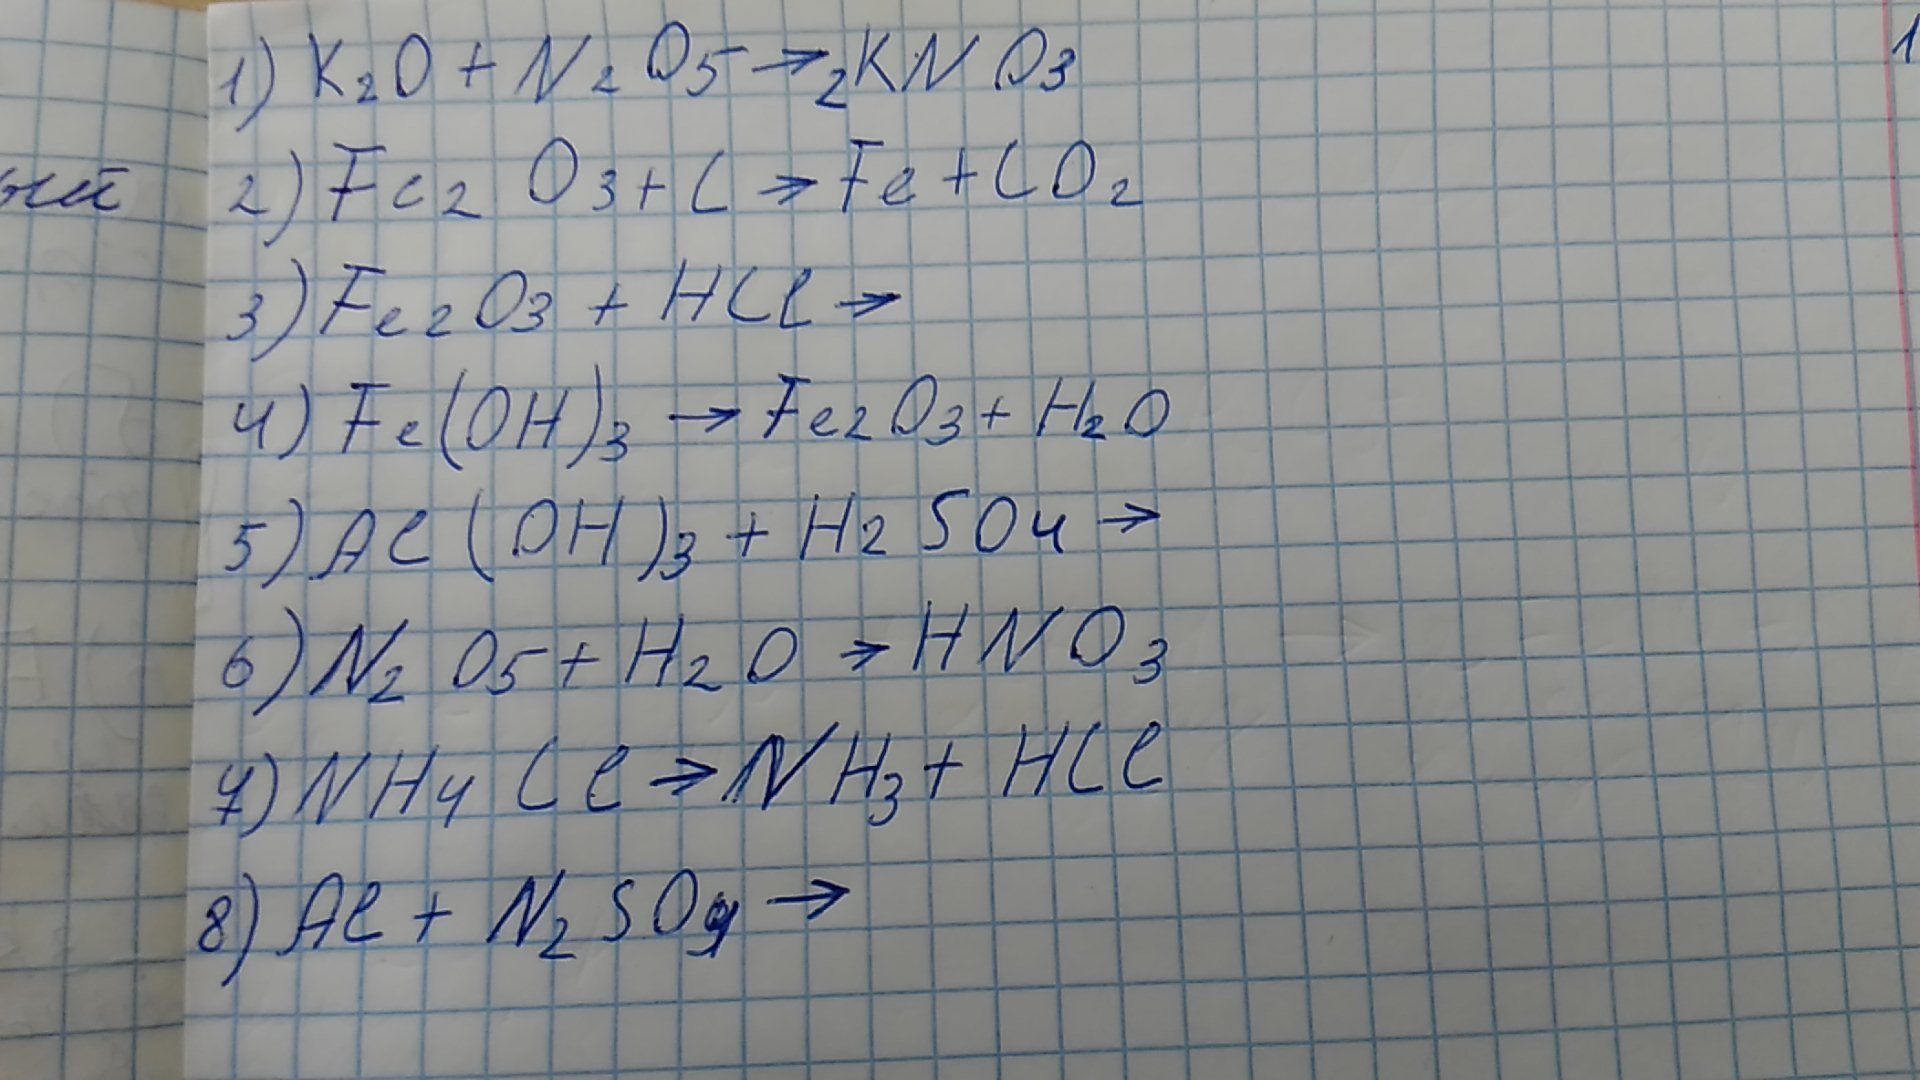 1) K2O + N2O5 → 2KNO3
2) Fe2O3 + C → Fe + CO2
3) Fe2O3 + HCl →
4) Fe(OH)3 → Fe2O3 + H2O
5) Al(OH)3 + H2SO4 →
6) N2O5 + H2O → HNO3
7) NH4Cl → NH3 + HCl
8) Al + N2SO4 →